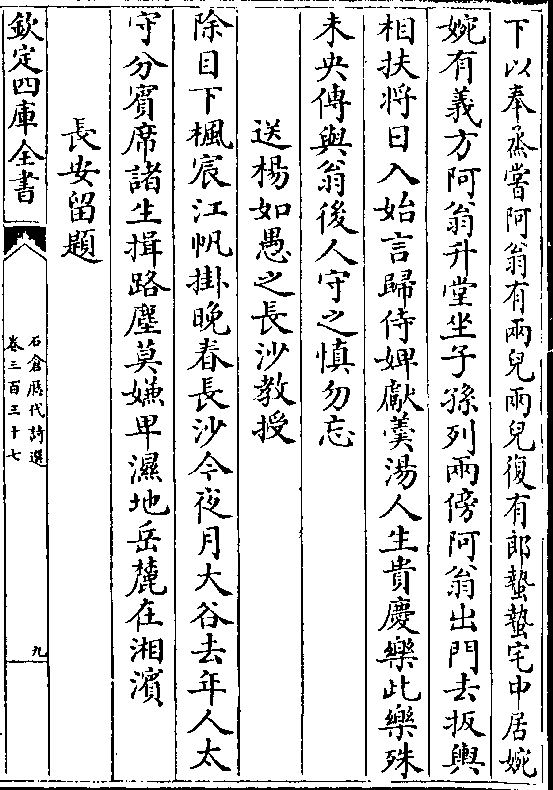 下以奉烝嘗阿翁有兩兒兩兒復有郎蟄蟄宅中居婉
婉有義方阿翁升堂坐子孫列兩傍阿翁出門去扳輿
相扶將日入始言歸侍婢獻羹湯人生貴慶樂此樂殊
未央傳與翁後人守之慎勿忘
送楊如愚之長沙教授
除目下楓宸江帆掛晚春長沙今夜月大谷去年人太
守分賓席諸生揖路塵莫嫌卑濕地岳麓在湘濱
長安留題
欽定四庫全書
石倉厯代詩選
卷三百三十七
九